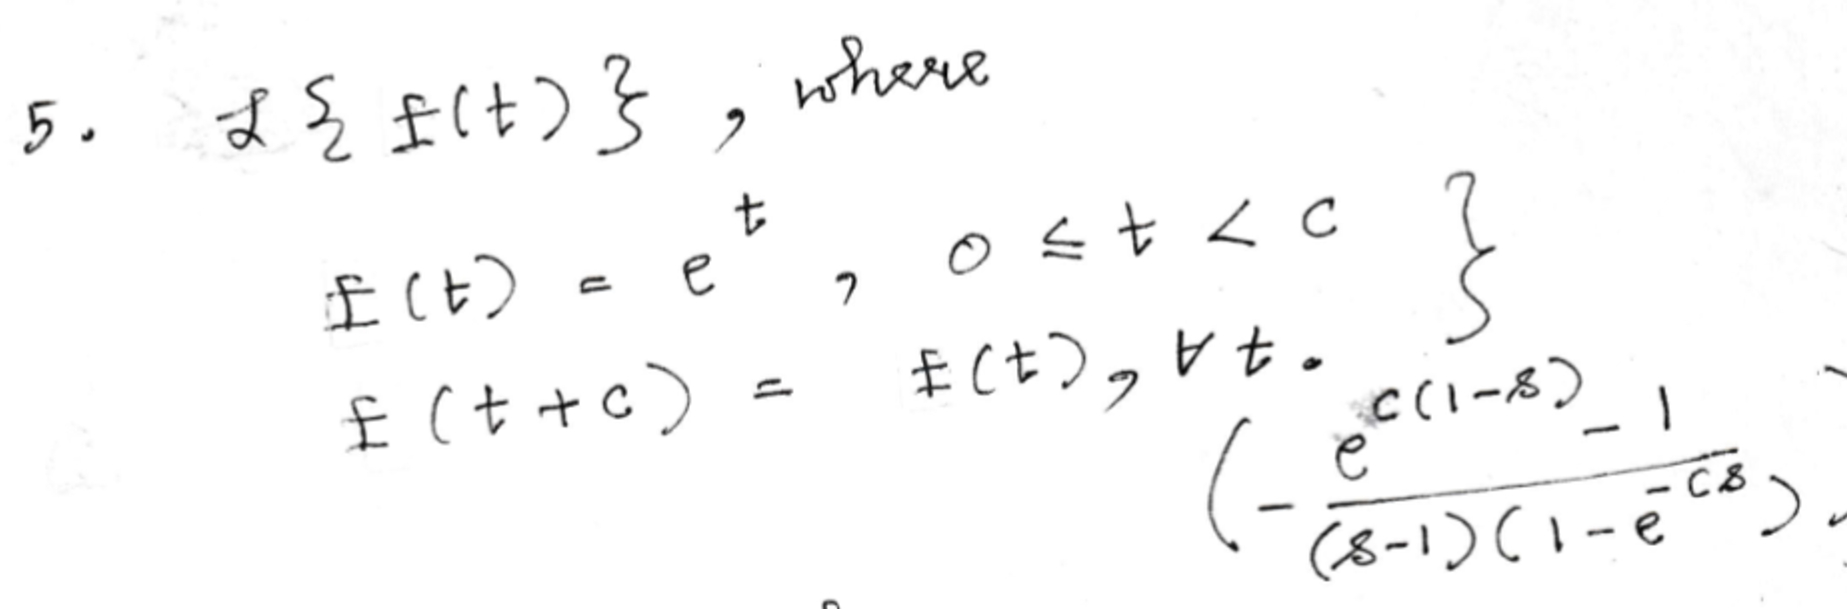 5. ℒ{f(t)}, where
f(t) = e^t, 0 ≤ t < c }
f(t+c) = f(t), ∀ t.
(- (e^{c(1-s)} - 1) / ((s-1)(1-e^{-cs})).